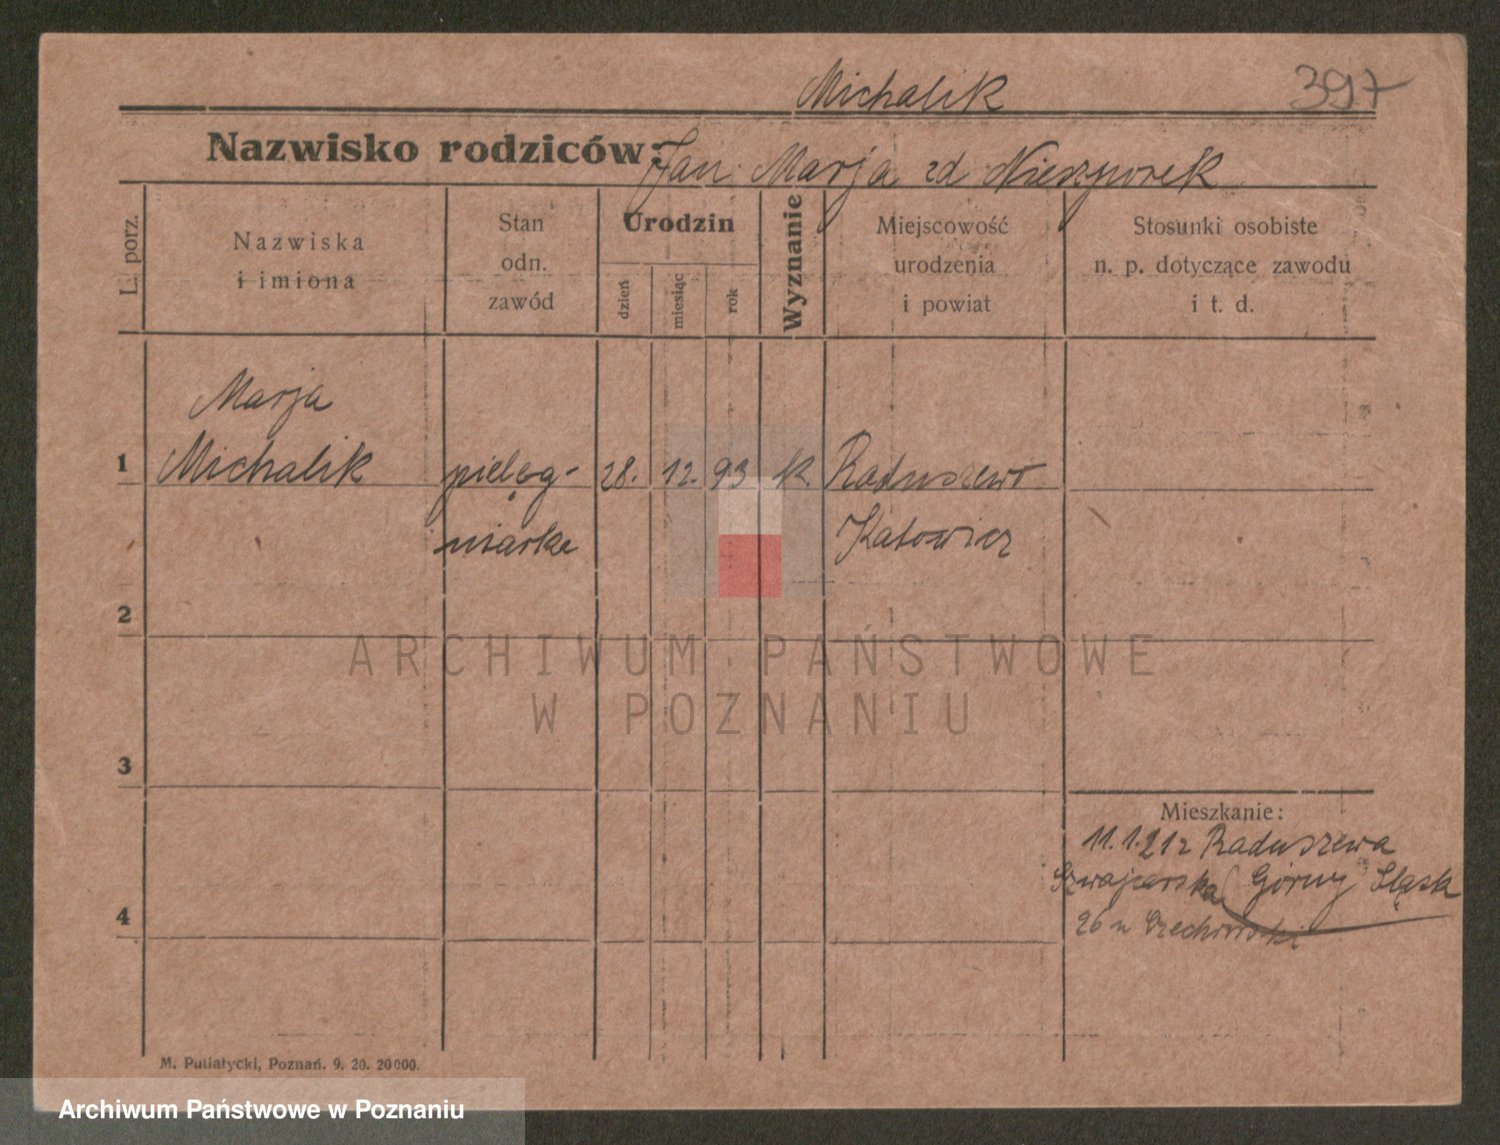 Michalik
397
Nazwisko rodziców: Jan Marja zd Nieszporek
L. porz.
Nazwiska
i imiona
Stan
odn.
zawód
Urodzin
dzień
miesiąc
rok
Wyznanie
Miejscowość
urodzenia
i powiat
Stosunki osobiste
n. p. dotyczące zawodu
i t. d.
Marja
1 Michalik pielęg- 28. 12. 93 k. Raduszewo
niarka Katowice
2
3
4
Mieszkanie:
11.1.21 z Raduszewa
Szwajcarska Górny Śląsk
26 u
M. Putiatycki, Poznań. 9. 20. 20000.
ARCHIWUM PAŃSTWOWE
W POZNANIU
Archiwum Państwowe w Poznaniu